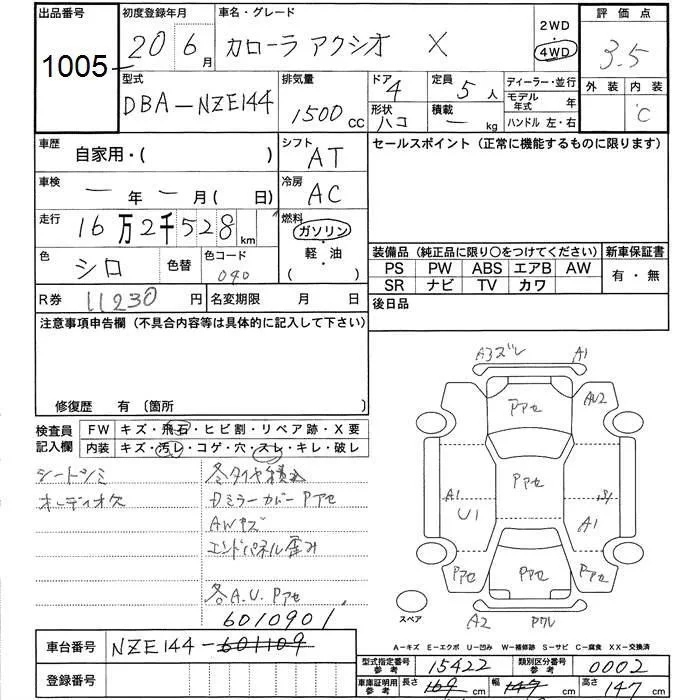 出品番号 初度登録年月 車名・グレード 2WD 評価点
1005 20 6月 カローラ アクシオ X 4WD 3.5
型式 排気量 ドア 4 定員 5人 ディーラー・並行 外装 内装
DBA-NZE144 1500cc 形状 ハコ 積載 ー kg モデル年式 年 C
ハンドル 左・右
車歴 自家用・( ) シフト AT セールスポイント(正常に機能するものに限ります)
車検 ー年ー月( 日) 冷房 AC
走行 16万2千528km 燃料 ガソリン・軽油( )
色 シロ 色替 色コード 040
装備品(純正品に限り○をつけてください) 新車保証書
PS PW ABS エアB AW 有・無
SR ナビ TV カワ
R券 11230円 名変期限 月 日 後日品
注意事項申告欄(不具合内容等は具体的に記入して下さい)
修復歴 有 〔箇所
検査員記入欄 FW キズ・飛石・ヒビ割・リペア跡・X要
内装 キズ・汚レ・コゲ・穴・スレ・キレ・破レ
シートシミ 冬タイヤ積込
オーディオ欠 Dミラーカバー Pアセ
AWキズ
エンドパネル歪み
各A.U.Pアセ
6010901
車台番号 NZE144-601109
登録番号
A3ズレ A1
Pアセ AU2
Pアセ
A1 U1 A1
Pアセ Pアセ Pアセ
スペア A2 Pワレ
A-キズ E-エクボ U-凹み W-補修跡 S-サビ C-腐食 XX-交換済
型式指定番号 参考 15422 類別区分番号 参考 0002
車庫証明用 参考 長さ 169cm 幅 147cm 高さ 147cm